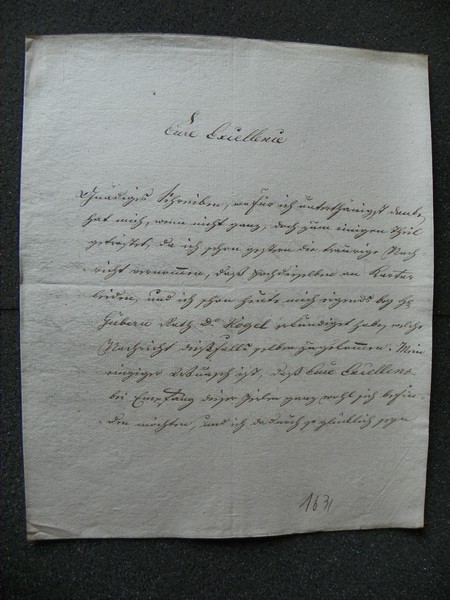 Eure Excellenz
Gnädiges Schreiben, wofür ich unterthänigst danke,
hat mich, wenn nicht ganz, doch zum einigen Theil
getröstet, da ich schon gestern die traurige Nach-
richt vernommen, daß Hochdieselben an Katar
leiden, und ich schon heute mich eigends bey H
Gubern Rath D. Vogel erkundiget habe, welche
Nachricht dießfalls selber zugekommen. Mein
einziger Wunsch ist, daß Eure Excellenz
bei Empfang dieser Zeilen ganz wohl sich befin-
den möchten, und ich dadurch so glücklich seyn